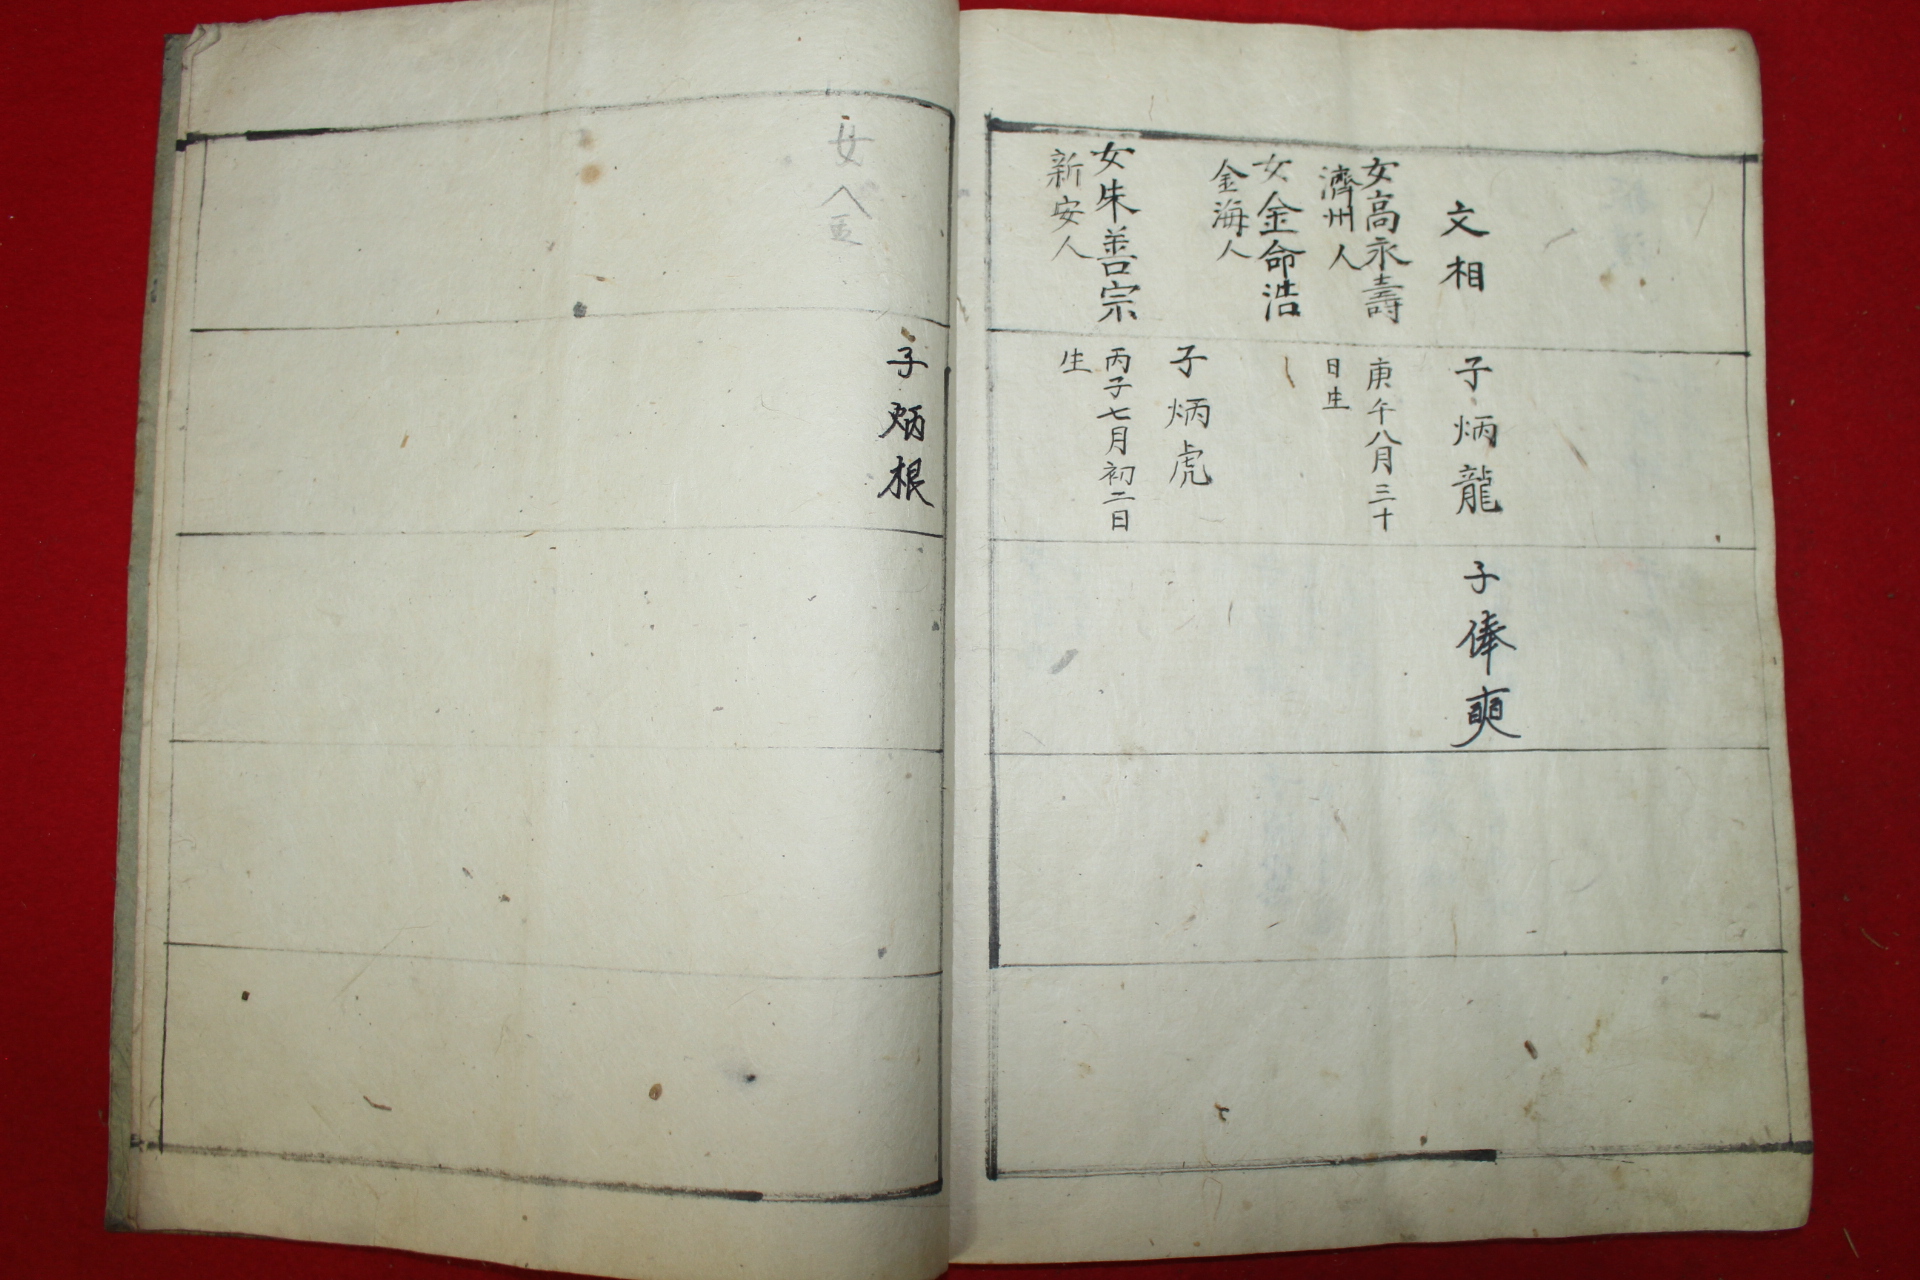 文相
女高永壽
濟州人
女金命浩
金海人
女朱善宗
新安人
子炳龍
庚午八月三十
日生
子炳虎
丙子七月初二日
生
子俸奭
子炳根
女